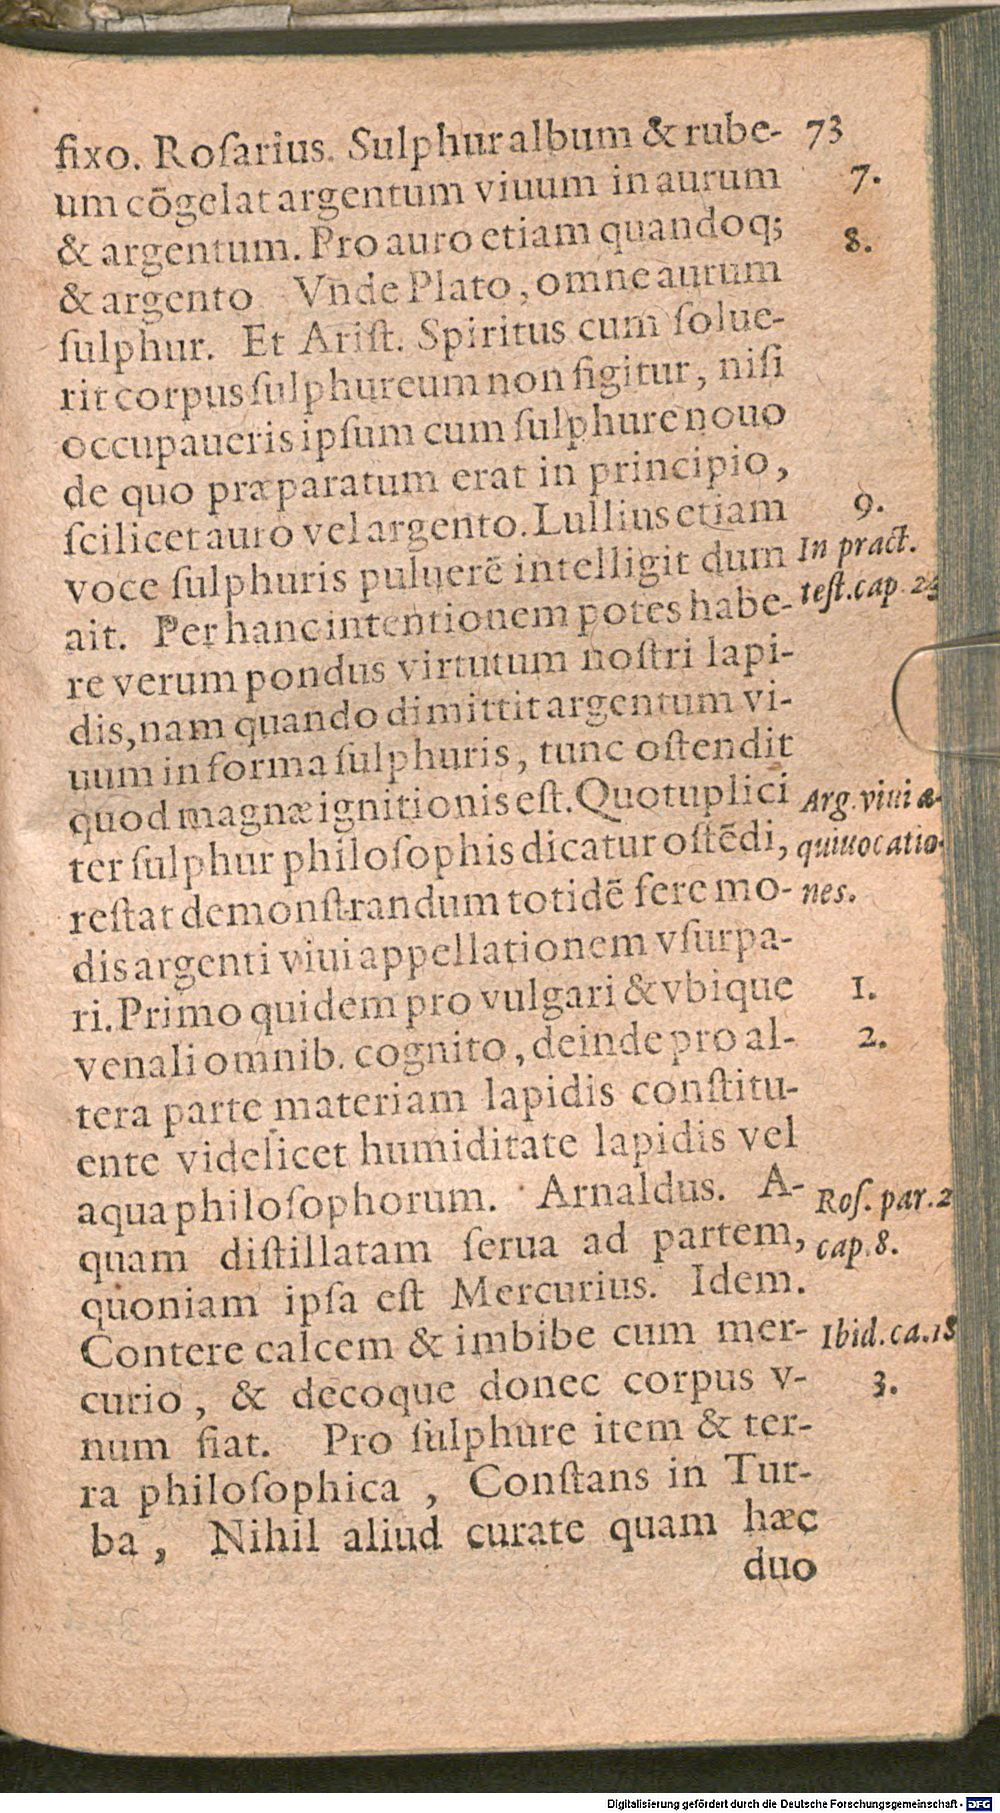 fixo. Roſarius. Sulphur album & rube- 73
um cõgelat argentum viuum in aurum 7.
& argentum. Pro auro etiam quandoq; 8.
& argento Vnde Plato, omne aurum
ſulphur. Et Ariſt. Spiritus cum ſolue-
rit corpus ſulphureum non figitur, niſi
occupaueris ipſum cum ſulphure nouo
de quo præparatum erat in principio,
ſcilicet auro vel argento. Lullius etiam 9.
voce ſulphuris puluerẽ intelligit dum In pract.
ait. Per hanc intentionem potes habe- teſt. cap. 23
re verum pondus virtutum noſtri lapi-
dis, nam quando dimittit argentum vi-
uum in forma ſulphuris, tunc oſtendit
quod magnæ ignitionis eſt. Quotuplici Arg. viui æ-
ter ſulphur philoſophis dicatur oſtẽdi, quiuocatio-
reſtat demonſtrandum totidẽ fere mo- nes.
dis argenti viui appellationem vſurpa-
ri. Primo quidem pro vulgari & vbique 1.
venali omnib. cognito, deinde pro al- 2.
tera parte materiam lapidis conſtitu-
ente videlicet humiditate lapidis vel
aqua philoſophorum. Arnaldus. A- Roſ. par. 2
quam diſtillatam ſerua ad partem, cap. 8.
quoniam ipſa eſt Mercurius. Idem.
Contere calcem & imbibe cum mer- Ibid. ca. 18
curio, & decoque donec corpus v- 3.
num fiat. Pro ſulphure item & ter-
ra philoſophica, Conſtans in Tur-
ba, Nihil aliud curate quam hæc
duo
Digitalisierung gefördert durch die Deutsche Forschungsgemeinschaft - DFG